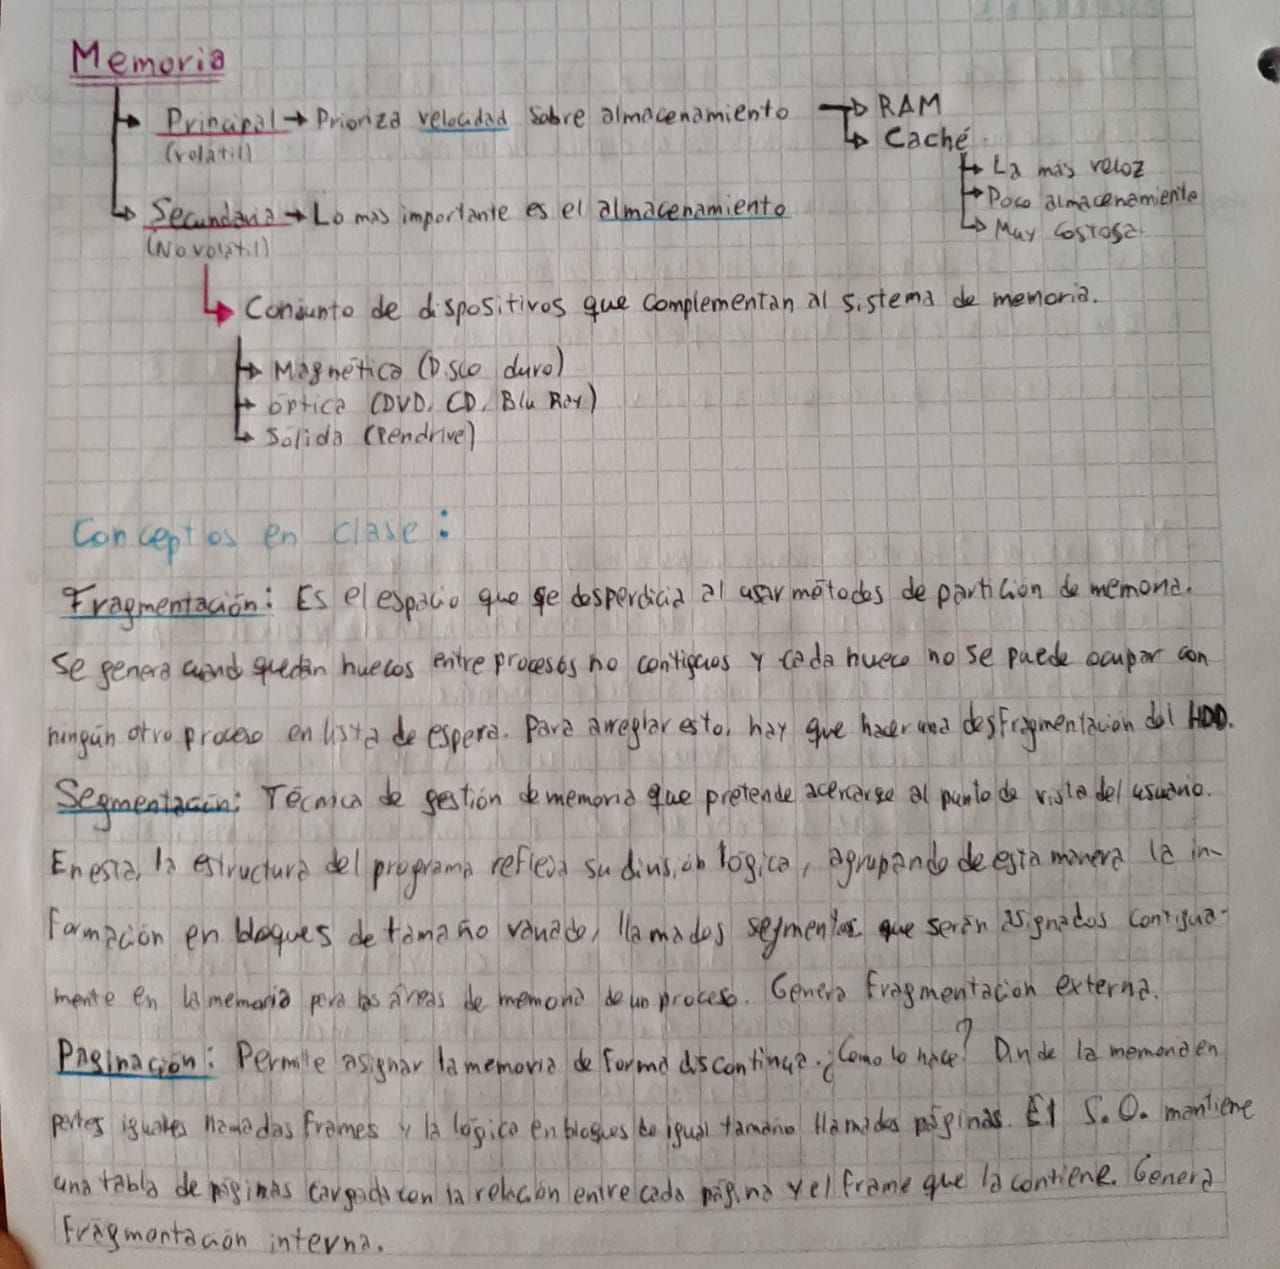 Memoria
Principal → Prioriza velocidad sobre almacenamiento → RAM
(volátil) → Caché
→ La más veloz
→ Poco almacenamiento
→ Muy costosa
Secundaria → Lo mas importante es el almacenamiento
(No volátil)
→ Conjunto de dispositivos que complementan al sistema de memoria.
→ Magnética (Disco duro)
→ Óptica (DVD, CD, Blu Ray)
→ Sólida (Pendrive)
Conceptos en clase:
Fragmentación: Es el espacio que se desperdicia al usar métodos de partición de memoria.
Se genera cuando quedan huecos entre procesos no contiguos y cada hueco no se puede ocupar con
ningún otro proceso en lista de espera. Para arreglar esto, hay que hacer una desfragmentación del HDD.
Segmentación: Técnica de gestión de memoria que pretende acercarse al punto de vista del usuario.
En esta, la estructura del programa refleja su división lógica, agrupando de esta manera la in-
formación en bloques de tamaño variado, llamados segmentos que serán asignados contigua-
mente en la memoria para las áreas de memoria de un proceso. Genera fragmentación externa.
Paginación: Permite asignar la memoria de forma discontinua. ¿Como lo hace? Divide la memoria en
partes iguales llamadas frames y la lógica en bloques de igual tamaño llamados páginas. El S.O. mantiene
una tabla de páginas cargada con la relación entre cada página y el frame que la contiene. Genera
fragmentación interna.